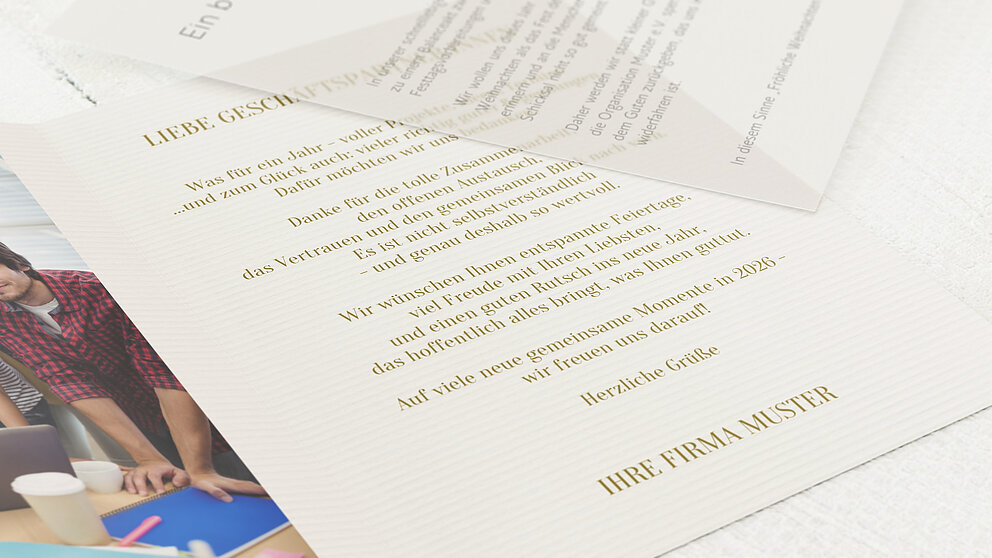 Ein b
In unserer schnelllebigen
zu einem Bürentakt zu
Festtagsvorbereitungen
Wir wollen uns dieses Jahr
Weihnachten als das Fest de
erinnern und an die Mensche
Schicksal nicht so gut gemeint
Daher werden wir statt kleiner G
die Organisation Muster e.V. spen
dem Guten zurückgeben, das uns w
widerfahren ist.
In diesem Sinne „Fröhliche Weihnachten
LIEBE GESCHÄFTSPARTNER:INNEN
Was für ein Jahr – voller Projekte
...und zum Glück auch: vieler richtig
Dafür möchten wir uns bedanken
Danke für die tolle Zusammenarbeit
den offenen Austausch,
das Vertrauen und den gemeinsamen Blick nach
Es ist nicht selbstverständlich
– und genau deshalb so wertvoll.
Wir wünschen Ihnen entspannte Feiertage,
viel Freude mit Ihren Liebsten,
und einen guten Rutsch ins neue Jahr,
das hoffentlich alles bringt, was Ihnen guttut.
Auf viele neue gemeinsame Momente in 2026 –
wir freuen uns darauf!
Herzliche Grüße
IHRE FIRMA MUSTER